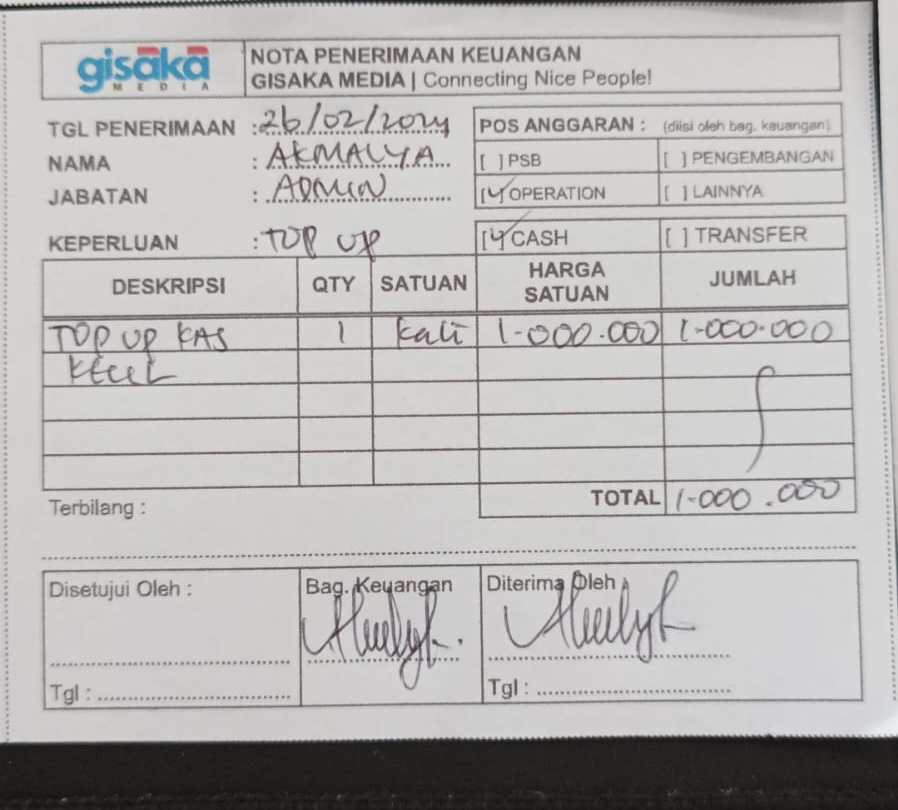 gisaka
MEDIA
NOTA PENERIMAAN KEUANGAN
GISAKA MEDIA | Connecting Nice People!
TGL PENERIMAAN : 26/02/2024
NAMA : AKMALYA
JABATAN : ADMIN
KEPERLUAN : TOP UP
POS ANGGARAN : (diisi oleh bag. keuangan)
[ ] PSB [ ] PENGEMBANGAN
[✓] OPERATION [ ] LAINNYA
[✓] CASH [ ] TRANSFER
DESKRIPSI QTY SATUAN HARGA SATUAN JUMLAH
TOP UP KAS 1 Kali 1.000.000 1.000.000
KECIL
Terbilang : TOTAL 1.000.000
Disetujui Oleh : Bag. Keuangan Diterima Oleh :
Tgl : Tgl :